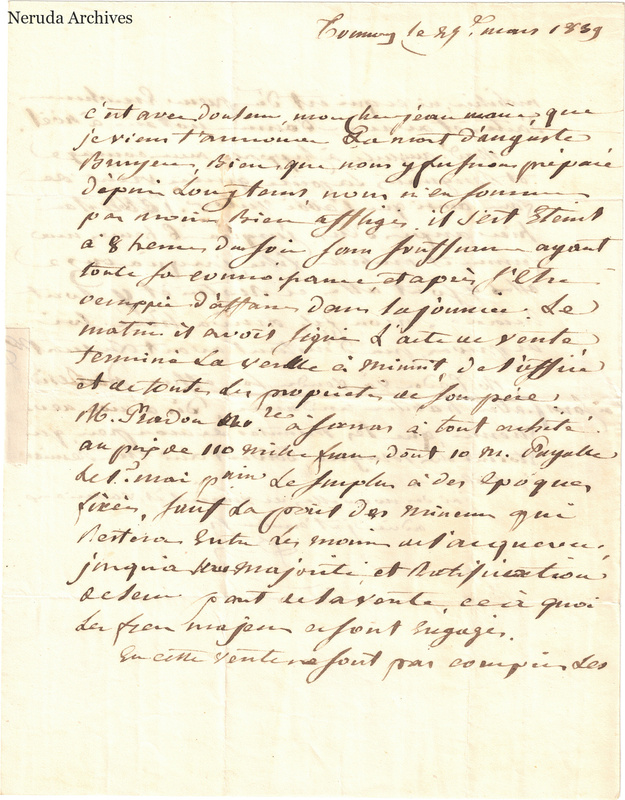 Neruda Archives
le 29 mars 1839
c'est avec douleur, mon cher jean marie, que
je viens t'annoncer La mort d'auguste
Bruyere, Bien que nous y fussions préparé
dépuis Longtems, nous n'en sommes
pas moins Bien affligés, il s'est Eteint
à 8 heures du soir sans souffrance ayant
toute sa connoissance, et après s'être
occuppé d'affaire dans la journée. Le
matin il avoit signé L'acte de vente
terminé La veille à minuit de l'office
et de toutes les propriétés de son père,
M. à tout achété
au prix de 110 mille francs, dont 10 m. Payable
Le 1er mai Le surplus à des époques
fixées, sauf La part des mineurs qui
Restera Entre Les mains de l'acquereur,
jusqu'a majorité et Ratification
de leur part de la vente ce à quoi
Les frères majeurs se sont Engagés.
En cette vente ne sont pas compris Les